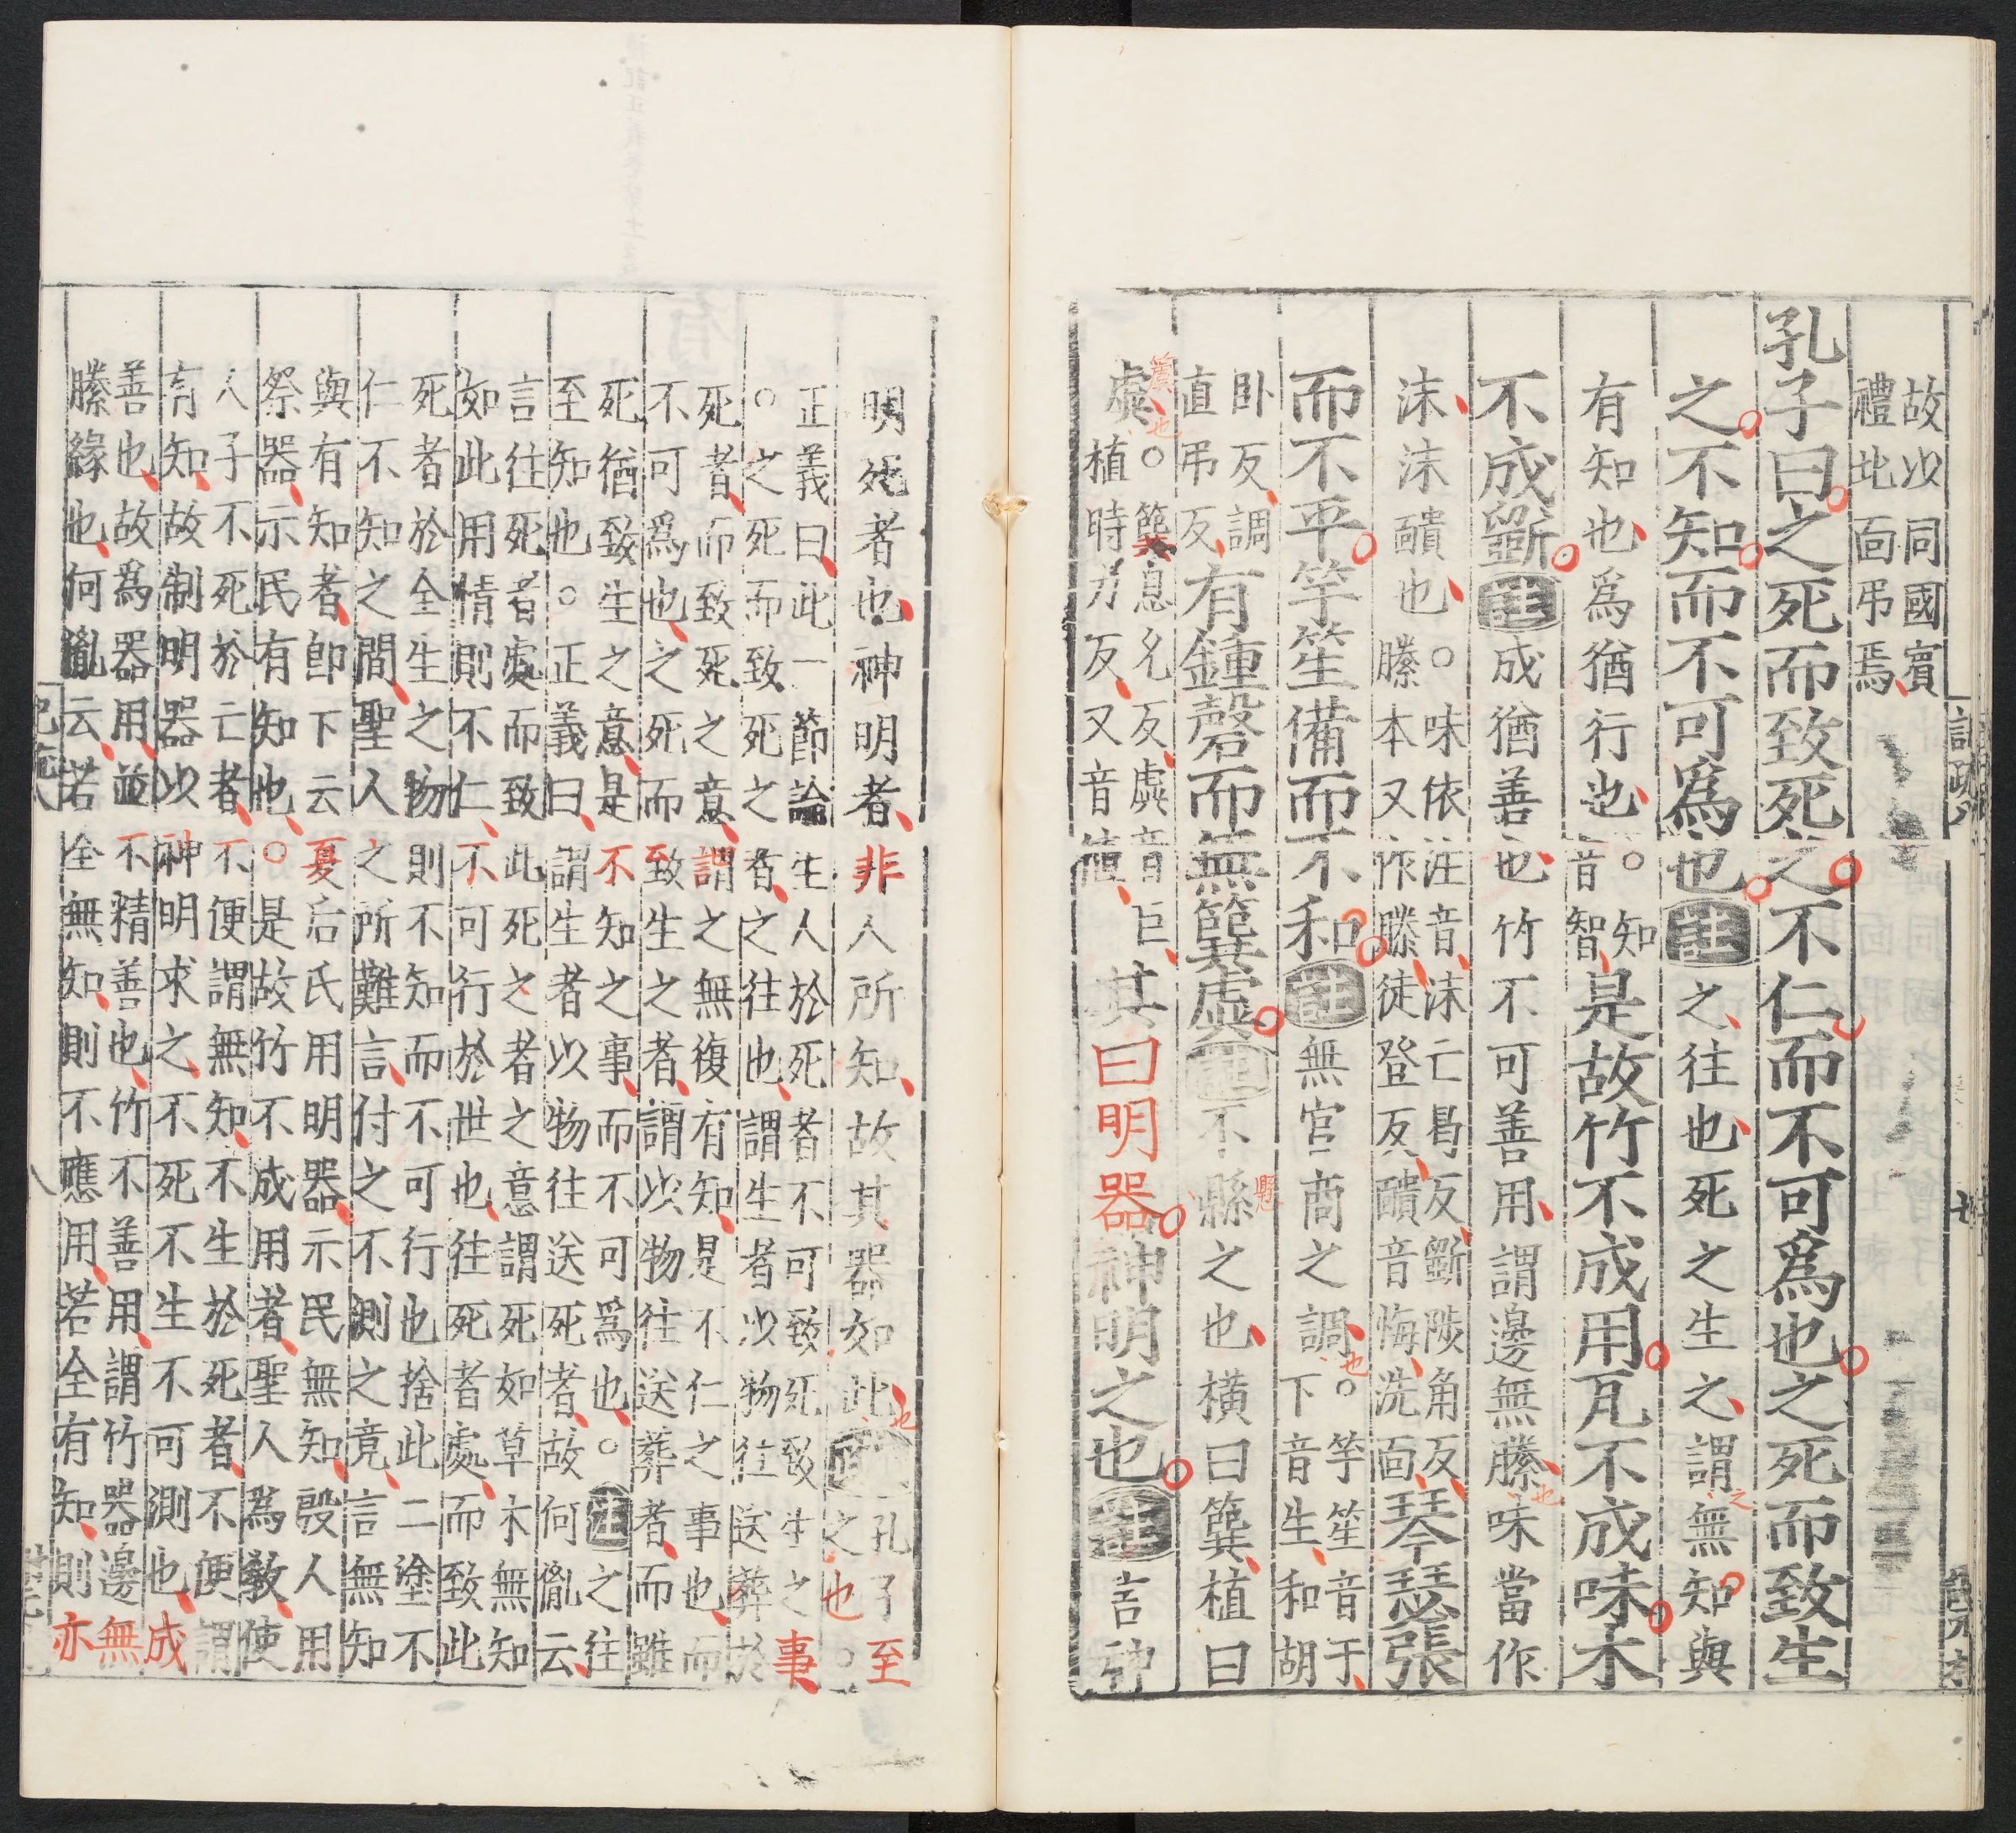 故以同國賓
禮此面弔焉
孔子曰之死而致死之不仁而不可爲也之死而致生
之不知而不可爲也註之往也死之生之謂無知與
有知也爲猶行也○知音智是故竹不成用瓦不成味木
不成斲註成猶善也竹不可善用謂邊無縢也味當作
沬沬靧也○味依注音沬亡曷反斲陟角反縢本又作滕徒登反靧音悔洗面琴瑟張
而不平竽笙備而不和註無宮商之調也○竽笙音于下音生和胡
卧反調直弔反有鍾磬而無簨虡註不縣之也橫曰簨植曰
虡也○簨息允反虡音巨植時力反又音値其曰明器神明之也註言神
明死者也神明者非人所知故其器如此也疏孔子至之也○
正義曰此一節論生人於死者不可致死致生之事
○之死而致死之者之往也謂生者以物往送葬於
死者而致死之意謂之無復有知是不仁之事也而
不可爲也之死而致生之者謂以物往送葬者而雖
死猶致生之意是不知之事而不可爲也○註之往
至知也○正義曰謂生者以物往送死者故何胤云
言往死者處而致此死之者之意謂死如草木無知
如此用情則不仁不可行於世也往死者處而致此
死者於全生之物則不知而不可行也捨此二塗不
仁不知之間聖人之所難言付之不測之竟言無知
與有知者即下云夏后氏用明器示民無知殷人用
祭器示民有知也○是故竹不成用者聖人爲敎使
人子不死於亡者不便謂無知不生於死者不便謂
有知故制明器以神明求之不死不生不可測也成
善也故爲器用並不精善也竹不善用謂竹器邊無
縢緣也何胤云若全無知則不應用若全有知則亦